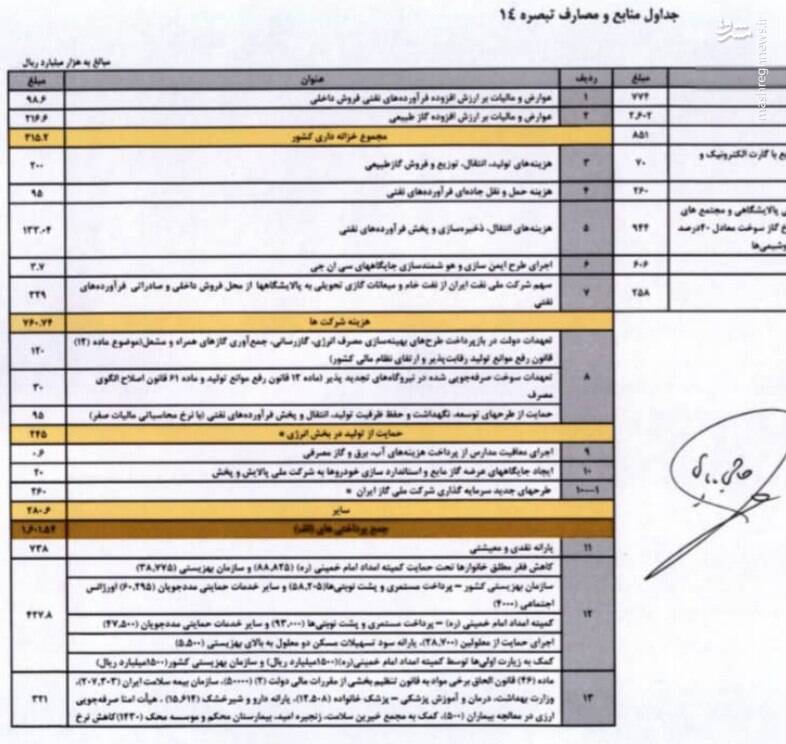 جداول منابع و مصارف تبصره ۱۴
mashreghnews.ir
مبالغ به هزار میلیارد ریال
مبلغ ردیف عنوان مبلغ
۷۷۴ ۱ عوارض و مالیات بر ارزش افزوده فرآورده‌های نفتی فروش داخلی ۹۸.۶
۲.۶۰۲ ۲ عوارض و مالیات بر ارزش افزوده گاز طبیعی ۲۱۶.۶
۸۵۱ مجموع خزانه داری کشور ۳۱۵.۲
با کارت الکترونیک و ۷۰ ۳ هزینه‌های تولید، انتقال، توزیع و فروش گازطبیعی ۲۰۰
۲۶۰ ۴ هزینه حمل و نقل جاده‌ای فرآورده‌های نفتی ۹۵
پالایشگاهی و مجتمع های
گاز سوخت معادل ۴۰درصد ۹۴۴ ۵ هزینه‌های انتقال، ذخیره‌سازی و پخش فرآورده‌های نفتی ۱۳۳.۰۴
۶۰۶ ۶ اجرای طرح ایمن سازی و هو شمندسازی جایگاههای سی ان جی ۳.۷
۲۵۸ ۷ سهم شرکت ملی نفت ایران از نفت خام و میعانات گازی تحویلی به پالایشگاهها از محل فروش داخلی و صادراتی فرآورده‌های
نفتی ۳۲۹
هزینه شرکت ها ۷۶۰.۷۴
۸ تعهدات دولت در بازپرداخت طرح‌های بهینه‌سازی مصرف انرژی، گازرسانی، جمع‌آوری گازهای همراه و مشعل(موضوع ماده (۱۲)
قانون رفع موانع تولید رقابت‌پذیر و ارتقای نظام مالی کشور) ۱۲۰
تعهدات سوخت صرفه‌جویی شده در نیروگاه‌های تجدید پذیر (ماده ۱۲ قانون رفع موانع تولید و ماده ۶۱ قانون اصلاح الگوی
مصرف ۳۰
حمایت از طرحهای توسعه، نگهداشت و حفظ ظرفیت تولید، انتقال و پخش فرآورده‌های نفتی (با نرخ محاسباتی مالیات صفر) ۹۵
حمایت از تولید در بخش انرژی * ۲۴۵
۹ اجرای معافیت مدارس از پرداخت هزینه‌های آب، برق و گاز مصرفی ۰.۶
۱۰ ایجاد جایگاههای عرضه گاز مایع و استاندارد سازی خودروها به شرکت ملی پالایش و پخش ۲۰
۱-۱۰ طرحهای جدید سرمایه گذاری شرکت ملی گاز ایران * ۲۶۰
سایر ۲۸۰.۶
جمع پرداختی های (الف) ۱.۶۰۱.۵۴
۱۱ یارانه نقدی و معیشتی ۷۳۸
۱۲ کاهش فقر مطلق خانوارها تحت حمایت کمیته امداد امام خمینی (ره) (۸۸,۸۲۵) و سازمان بهزیستی (۳۸,۷۷۵)
سازمان بهزیستی کشور – پرداخت مستمری و پشت نوبتی‌ها(۵۸,۲۰۵) و سایر خدمات حمایتی مددجویان (۶۰,۲۹۵) اورژانس
اجتماعی (۴۰۰۰) ۴۲۷.۸
کمیته امداد امام خمینی (ره) – پرداخت مستمری و پشت نوبتی‌ها (۹۳,۰۰۰) و سایر خدمات حمایتی مددجویان (۴۷,۵۰۰)
اجرای حمایت از معلولین (۲۸,۷۰۰)، یارانه سود تسهیلات مسکن دو معلول به بالای بهزیستی (۵,۵۰۰)
کمک به زیارت اولی‌ها توسط کمیته امداد امام خمینی(ره)(۱۵۰۰میلیارد ریال) و سازمان بهزیستی کشور(۱۵۰۰میلیارد ریال)
۱۳ ماده (۴۶) قانون الحاق برخی مواد به قانون تنظیم بخشی از مقررات مالی دولت (۲) (۵۰۰۰۰)، سازمان بیمه سلامت ایران (۲۰۷,۳۰۳)،
وزارت بهداشت، درمان و آموزش پزشکی – پزشک خانواده (۱۲,۵۰۸)، یارانه دارو و شیرخشک (۱۵,۶۱۴) ، هیأت امنا صرفه‌جویی ۳۲۱
ارزی در معالجه بیماران (۵۰۰)، کمک به مجمع خیرین سلامت، زنجیره امید، بیمارستان محکم و موسسه محک (۱۴۳۰)کاهش نرخ